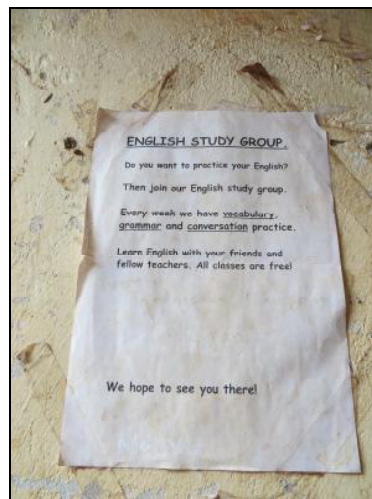 ENGLISH STUDY GROUP.
Do you want to practice your English?
Then join our English study group.
Every week we have vocabulary,
grammar and conversation practice.
Learn English with your friends and
fellow teachers. All classes are free!
We hope to see you there!